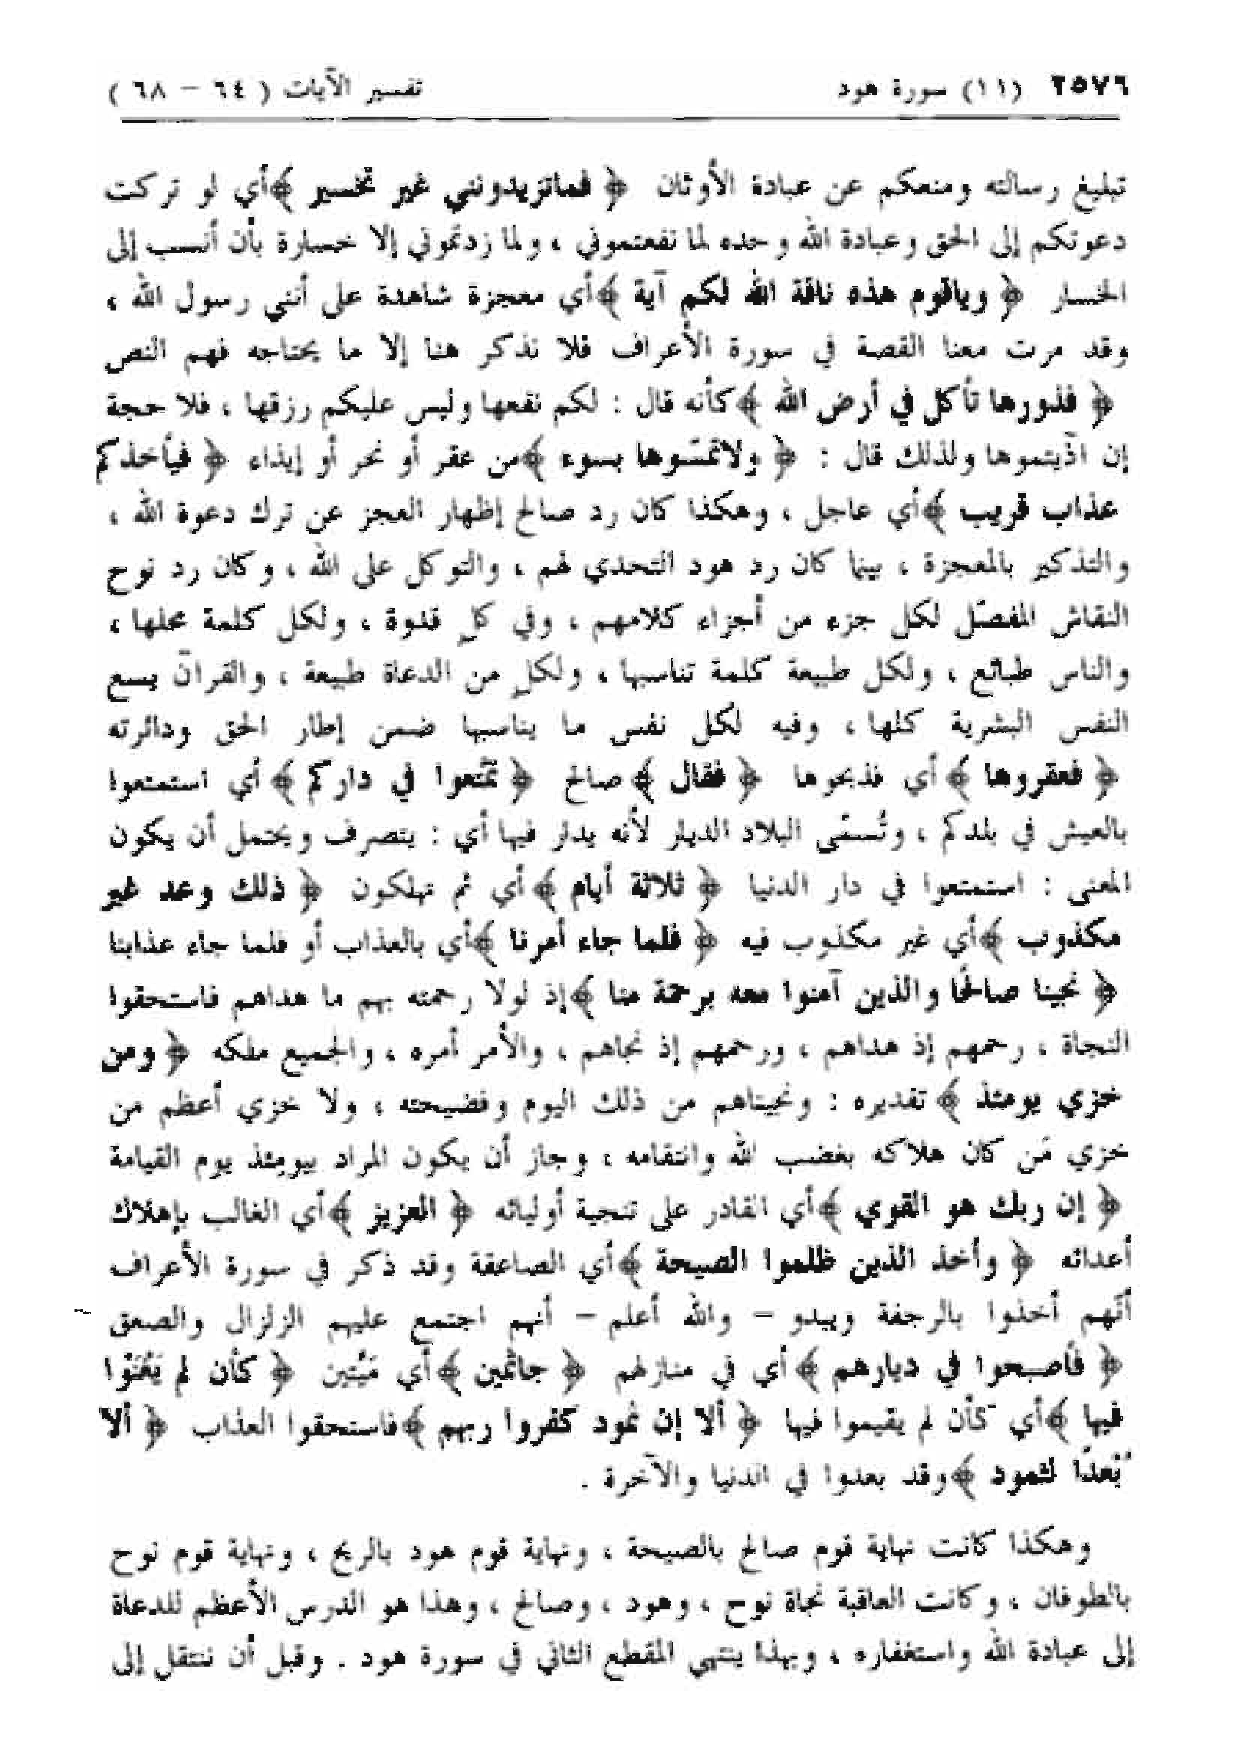 ٢٥٧٦ (١١) سورة هود تفسير الآيات ( ٦٤ – ٦٨ )
تبليغ رسالته ومنعكم عن عبادة الأوثان ﴿ فماتزيدونني غير تخسير ﴾أي لو تركت
دعوتكم إلى الحق وعبادة الله وحده لما نفعتموني ، ولما زدتموني إلا خسارة بأن أنسب إلى
الخسار ﴿ وياقوم هذه ناقة الله لكم آية ﴾أي معجزة شاهدة على أنني رسول الله ،
وقد مرت معنا القصة في سورة الأعراف فلا نذكر هنا إلا ما يحتاجه فهم النص
﴿ فذورها تأكل في أرض الله ﴾كأنه قال : لكم نفعها وليس عليكم رزقها ، فلا حجة
إن آذيتموها ولذلك قال : ﴿ ولاتمسّوها بسوء ﴾من عقر أو نحر أو إيذاء ﴿ فيأخذكم
عذاب قريب ﴾أي عاجل ، وهكذا كان رد صالح إظهار العجز عن ترك دعوة الله ،
والتذكير بالمعجزة ، بينما كان رد هود التحدي لهم ، والتوكل على الله ، وكان رد نوح
النقاش المفصّل لكل جزء من أجزاء كلامهم ، وفي كلٍ قدوة ، ولكل كلمة محلها ،
والناس طبائع ، ولكل طبيعة كلمة تناسبها ، ولكلٍ من الدعاة طبيعة ، والقرآن يسع
النفس البشرية كلها ، وفيه لكل نفس ما يناسبها ضمن إطار الحق ودائرته
﴿ فعقروها ﴾ أي فذبحوها ﴿ فقال ﴾ صالح ﴿ تمتّعوا في داركم ﴾ أي استمتعوا
بالعيش في بلدكم ، وتُسمّى البلاد الديار لأنه يدار فيها أي : يتصرف ويحتمل أن يكون
المعنى : استمتعوا في دار الدنيا ﴿ ثلاثة أيام ﴾ أي ثم تهلكون ﴿ ذلك وعد غير
مكذوب ﴾أي غير مكذوب فيه ﴿ فلما جاء أمرنا ﴾أي بالعذاب أو فلما جاء عذابنا
﴿ نجينا صالحًا والذين آمنوا معه برحمة منا ﴾إذ لولا رحمته بهم ما هداهم فاستحقوا
النجاة ، رحمهم إذ هداهم ، ورحمهم إذ نجاهم ، والأمر أمره ، والجميع ملكه ﴿ ومن
خزي يومئذ ﴾ تقديره : ونجيناهم من ذلك اليوم وفضيحته ، ولا خزي أعظم من
خزي مَن كان هلاكه بغضب الله وانتقامه ، وجاز أن يكون المراد بيومئذ يوم القيامة
﴿ إن ربك هو القوي ﴾أي القادر على تنجية أوليائه ﴿ العزيز ﴾أي الغالب بإهلاك
أعدائه ﴿ وأخذ الذين ظلموا الصيحة ﴾أي الصاعقة وقد ذكر في سورة الأعراف
أنّهم أخذوا بالرجفة ويبدو – والله أعلم – أنهم اجتمع عليهم الزلزال والصعق
﴿ فأصبحوا في ديارهم ﴾ أي في منازلهم ﴿ جاثمين ﴾أي مَيّتين ﴿ كأن لم يَغْنَوْا
فيها ﴾أي كأن لم يقيموا فيها ﴿ ألا إن ثمود كفروا ربهم ﴾فاستحقوا العذاب ﴿ ألا
بُعدًا لثمود ﴾وقد بعدوا في الدنيا والآخرة .
وهكذا كانت نهاية قوم صالح بالصيحة ، ونهاية قوم هود بالريح ، ونهاية قوم نوح
بالطوفان ، وكانت العاقبة نجاة نوح ، وهود ، وصالح ، وهذا هو الدرس الأعظم للدعاة
إلى عبادة الله واستغفاره ، وبهذا ينتهي المقطع الثاني في سورة هود . وقبل أن ننتقل إلى